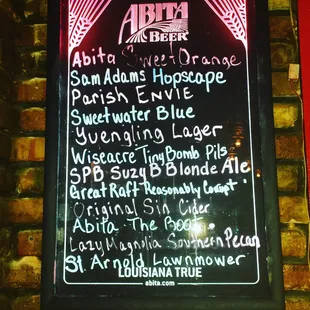 ABITA
BEER
Abita Sweet Orange
Sam Adams Hopscape
Parish ENVIE
Sweetwater Blue
Yuengling Lager
Wiseacre Tiny Bomb Pils
SPB Suzy B Blonde Ale
Great Raft Reasonably Corrupt
Original Sin Cider
Abita - The Boot
Lazy Magnolia Southern Pecan
St. Arnold Lawnmower
LOUISIANA TRUE
abita.com